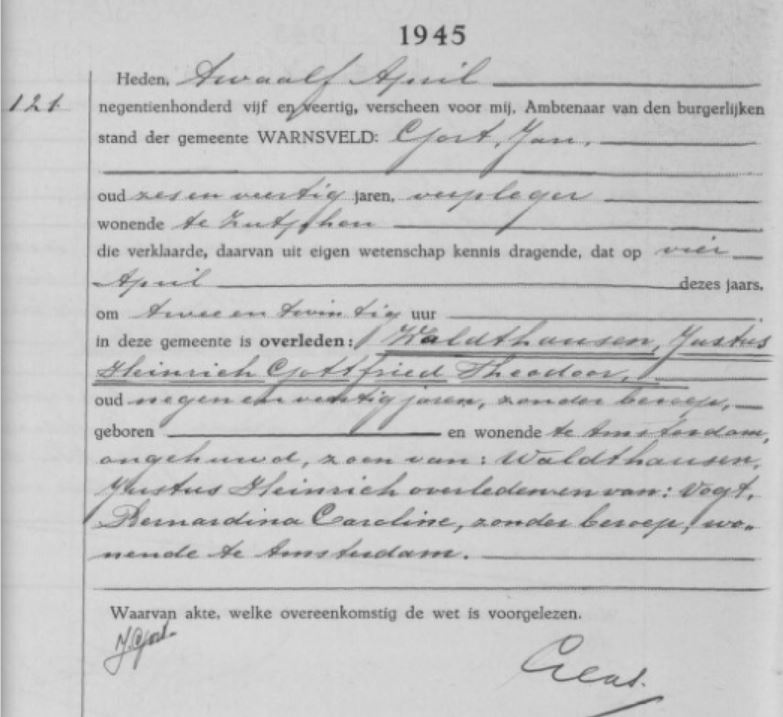 1945
Heden, twaalf April
121.
negentienhonderd vijf en veertig, verscheen voor mij, Ambtenaar van den burgerlijken
stand der gemeente WARNSVELD: Gort, Jan,
oud zes en veertig jaren, verpleger
wonende te Zutphen
die verklaarde, daarvan uit eigen wetenschap kennis dragende, dat op vier
April dezes jaars,
om twee en twintig uur
in deze gemeente is overleden: Waldthausen, Justus
Heinrich Gottfried Theodoor,
oud negen en veertig jaren, zonder beroep,
geboren en wonende te Amsterdam,
ongehuwd, zoon van: Waldthausen,
Justus Heinrich overleden en van: Vogt,
Bernardina Caroline, zonder beroep, wo-
nende te Amsterdam.
Waarvan akte, welke overeenkomstig de wet is voorgelezen.
J. Gort.